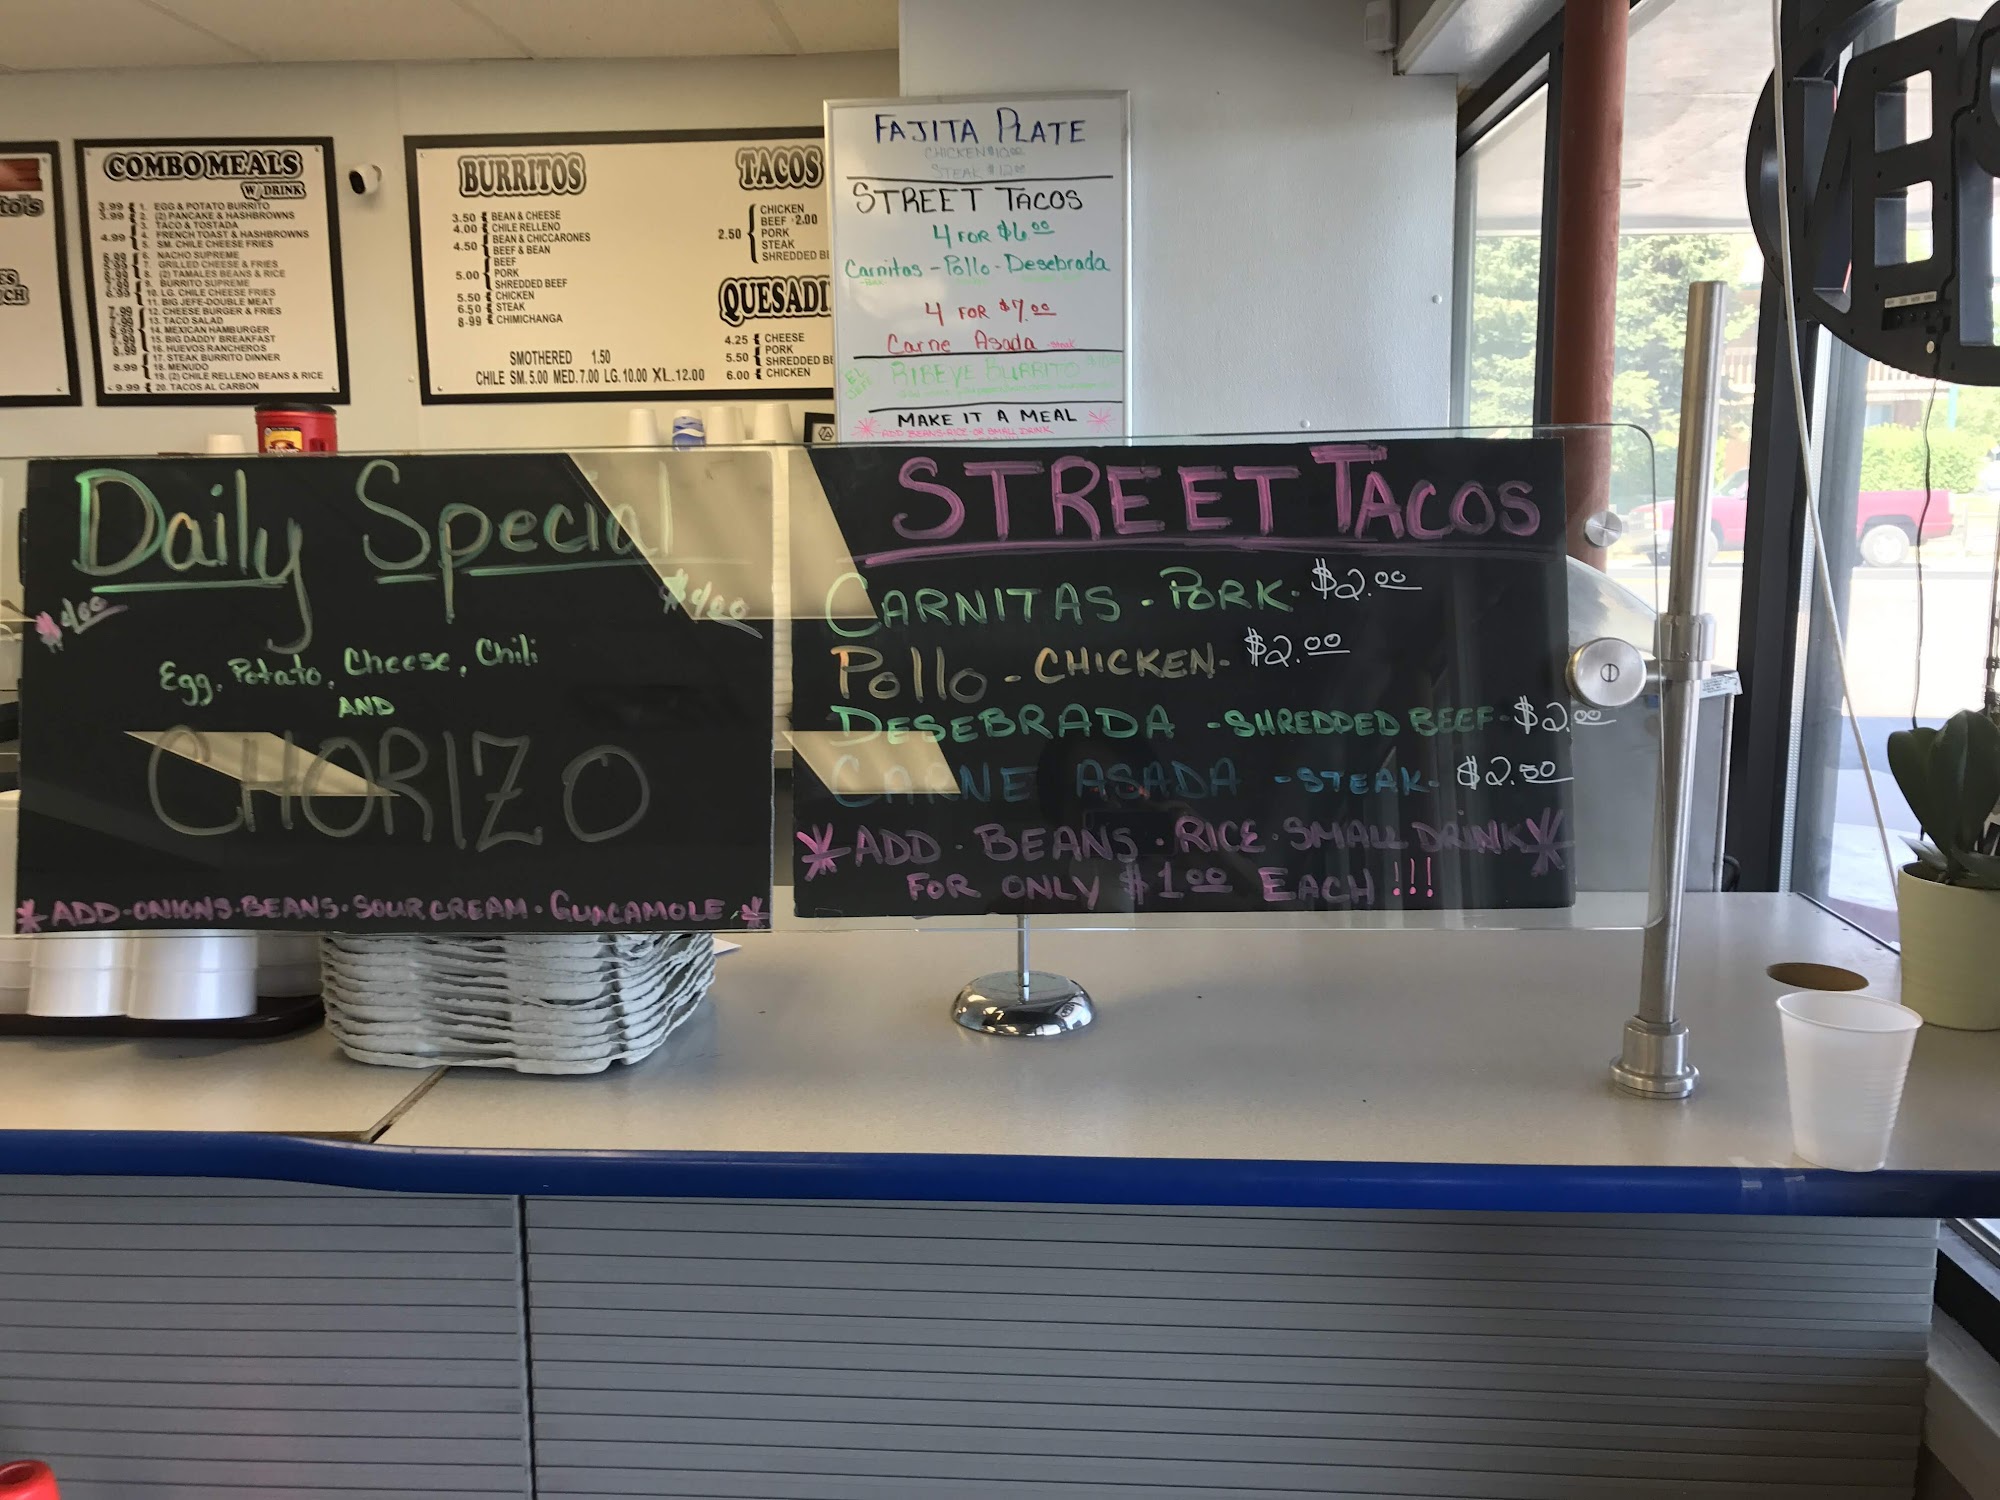 to's
ES
CH
COMBO MEALS
W/ DRINK
3.99 1. EGG & POTATO BURRITO
3.99 2. (2) PANCAKE & HASHBROWNS
3. TACO & TOSTADA
4.99 4. FRENCH TOAST & HASHBROWNS
5. SM. CHILE CHEESE FRIES
6. NACHO SUPREME
7. GRILLED CHEESE & FRIES
8. (2) TAMALES BEANS & RICE
9. BURRITO SUPREME
6.99 10. LG. CHILE CHEESE FRIES
11. BIG JEFE-DOUBLE MEAT
7.99 12. CHEESE BURGER & FRIES
13. TACO SALAD
14. MEXICAN HAMBURGER
15. BIG DADDY BREAKFAST
8.99 16. HUEVOS RANCHEROS
17. STEAK BURRITO DINNER
8.99 18. MENUDO
19. (2) CHILE RELLENO BEANS & RICE
9.99 20. TACOS AL CARBON
BURRITOS
3.50 BEAN & CHEESE
4.00 CHILE RELLENO
4.50 BEAN & CHICCARONES
BEEF & BEAN
5.00 BEEF
PORK
SHREDDED BEEF
5.50 CHICKEN
6.50 STEAK
8.99 CHIMICHANGA
SMOTHERED 1.50
CHILE SM. 5.00 MED. 7.00 LG. 10.00 XL. 12.00
TACOS
2.50 CHICKEN
BEEF - 2.00
PORK
STEAK
SHREDDED BE
QUESADI
4.25 CHEESE
5.50 PORK
SHREDDED BE
6.00 CHICKEN
FAJITA PLATE
CHICKEN $10.00
STEAK $12.00
STREET TACOS
4 FOR $6.00
Carnitas - Pollo - Desebrada
4 FOR $7.00
Carne Asada - steak
EL JEFE RIBEYE BURRITO
MAKE IT A MEAL
ADD BEANS-RICE-OR SMALL DRINK
Daily Special
$4.00 $4.00
Egg, Potato, Cheese, Chili
AND
CHORIZO
* ADD-ONIONS-BEANS-SOUR CREAM-GUACAMOLE. *
STREET TACOS
CARNITAS - PORK - $2.00
Pollo - CHICKEN - $2.00
DESEBRADA - SHREDDED BEEF - $2.00
CARNE ASADA - STEAK - $2.50
* ADD - BEANS - RICE - SMALL DRINK *
FOR ONLY $1.00 EACH!!!